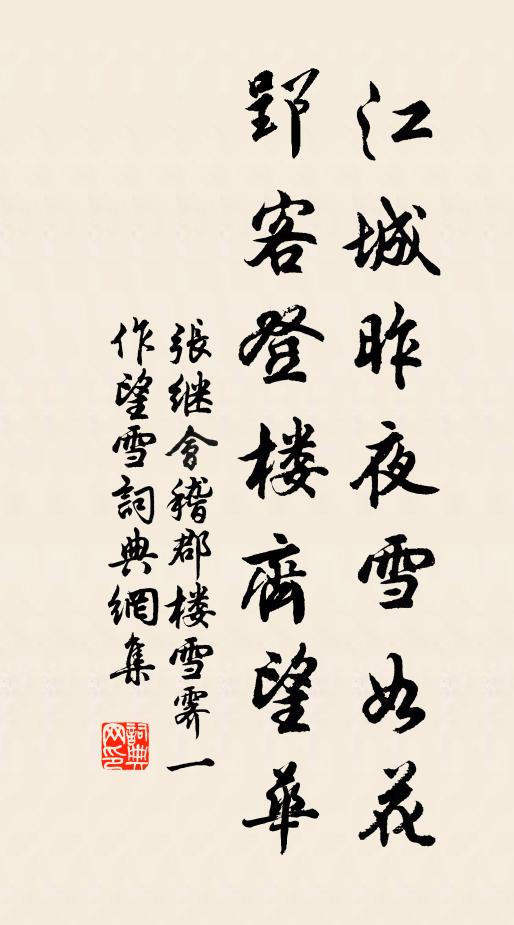 江城昨夜雪如花
郢客登楼齊望華
張继會稽郡楼雪霽一
作望雪詞典網集
詞典
网印